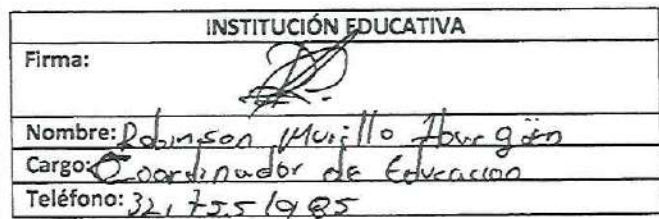 INSTITUCIÓN EDUCATIVA
Firma:
Nombre: Robinson Murillo Ibargüen
Cargo: Coordinador de Educacion
Teléfono: